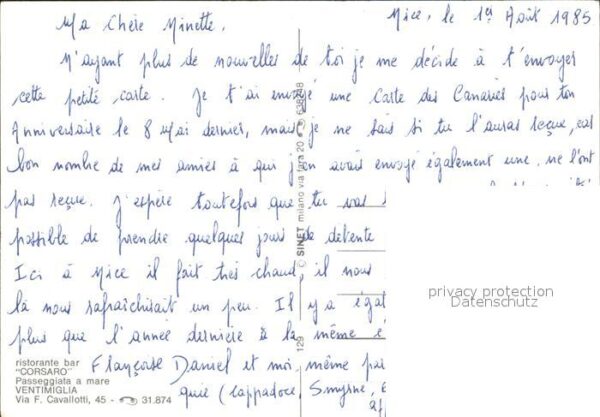 Nice, le 1er Août 1985
Ma Chère Minette,
N'ayant plus de nouvelles de toi je me décide à t'envoyer
cette petite carte. Je t'ai envoyé une Carte des Canaries pour ton
Anniversaire le 8 Mai dernier, mais je ne sais si tu l'auras reçue, car
bon nombre de mes amies à qui j'en avais envoyé également une, ne l'ont
pas reçue. J'espère toutefois que tu vas
possible de prendre quelques jours de détente
Ici à Nice il fait très chaud, il nous
là nous rafraîchirait un peu. Il y a égal
plus que l'année dernière à la même é
Françoise Daniel et moi, même par
quie (Cappadoce, Smyrne, E
ristorante bar
"CORSARO"
Passeggiata a mare
VENTIMIGLIA
Via F. Cavallotti, 45 - 31.874
129 © SINET milano via fara 20 638248
privacy protection
Datenschutz